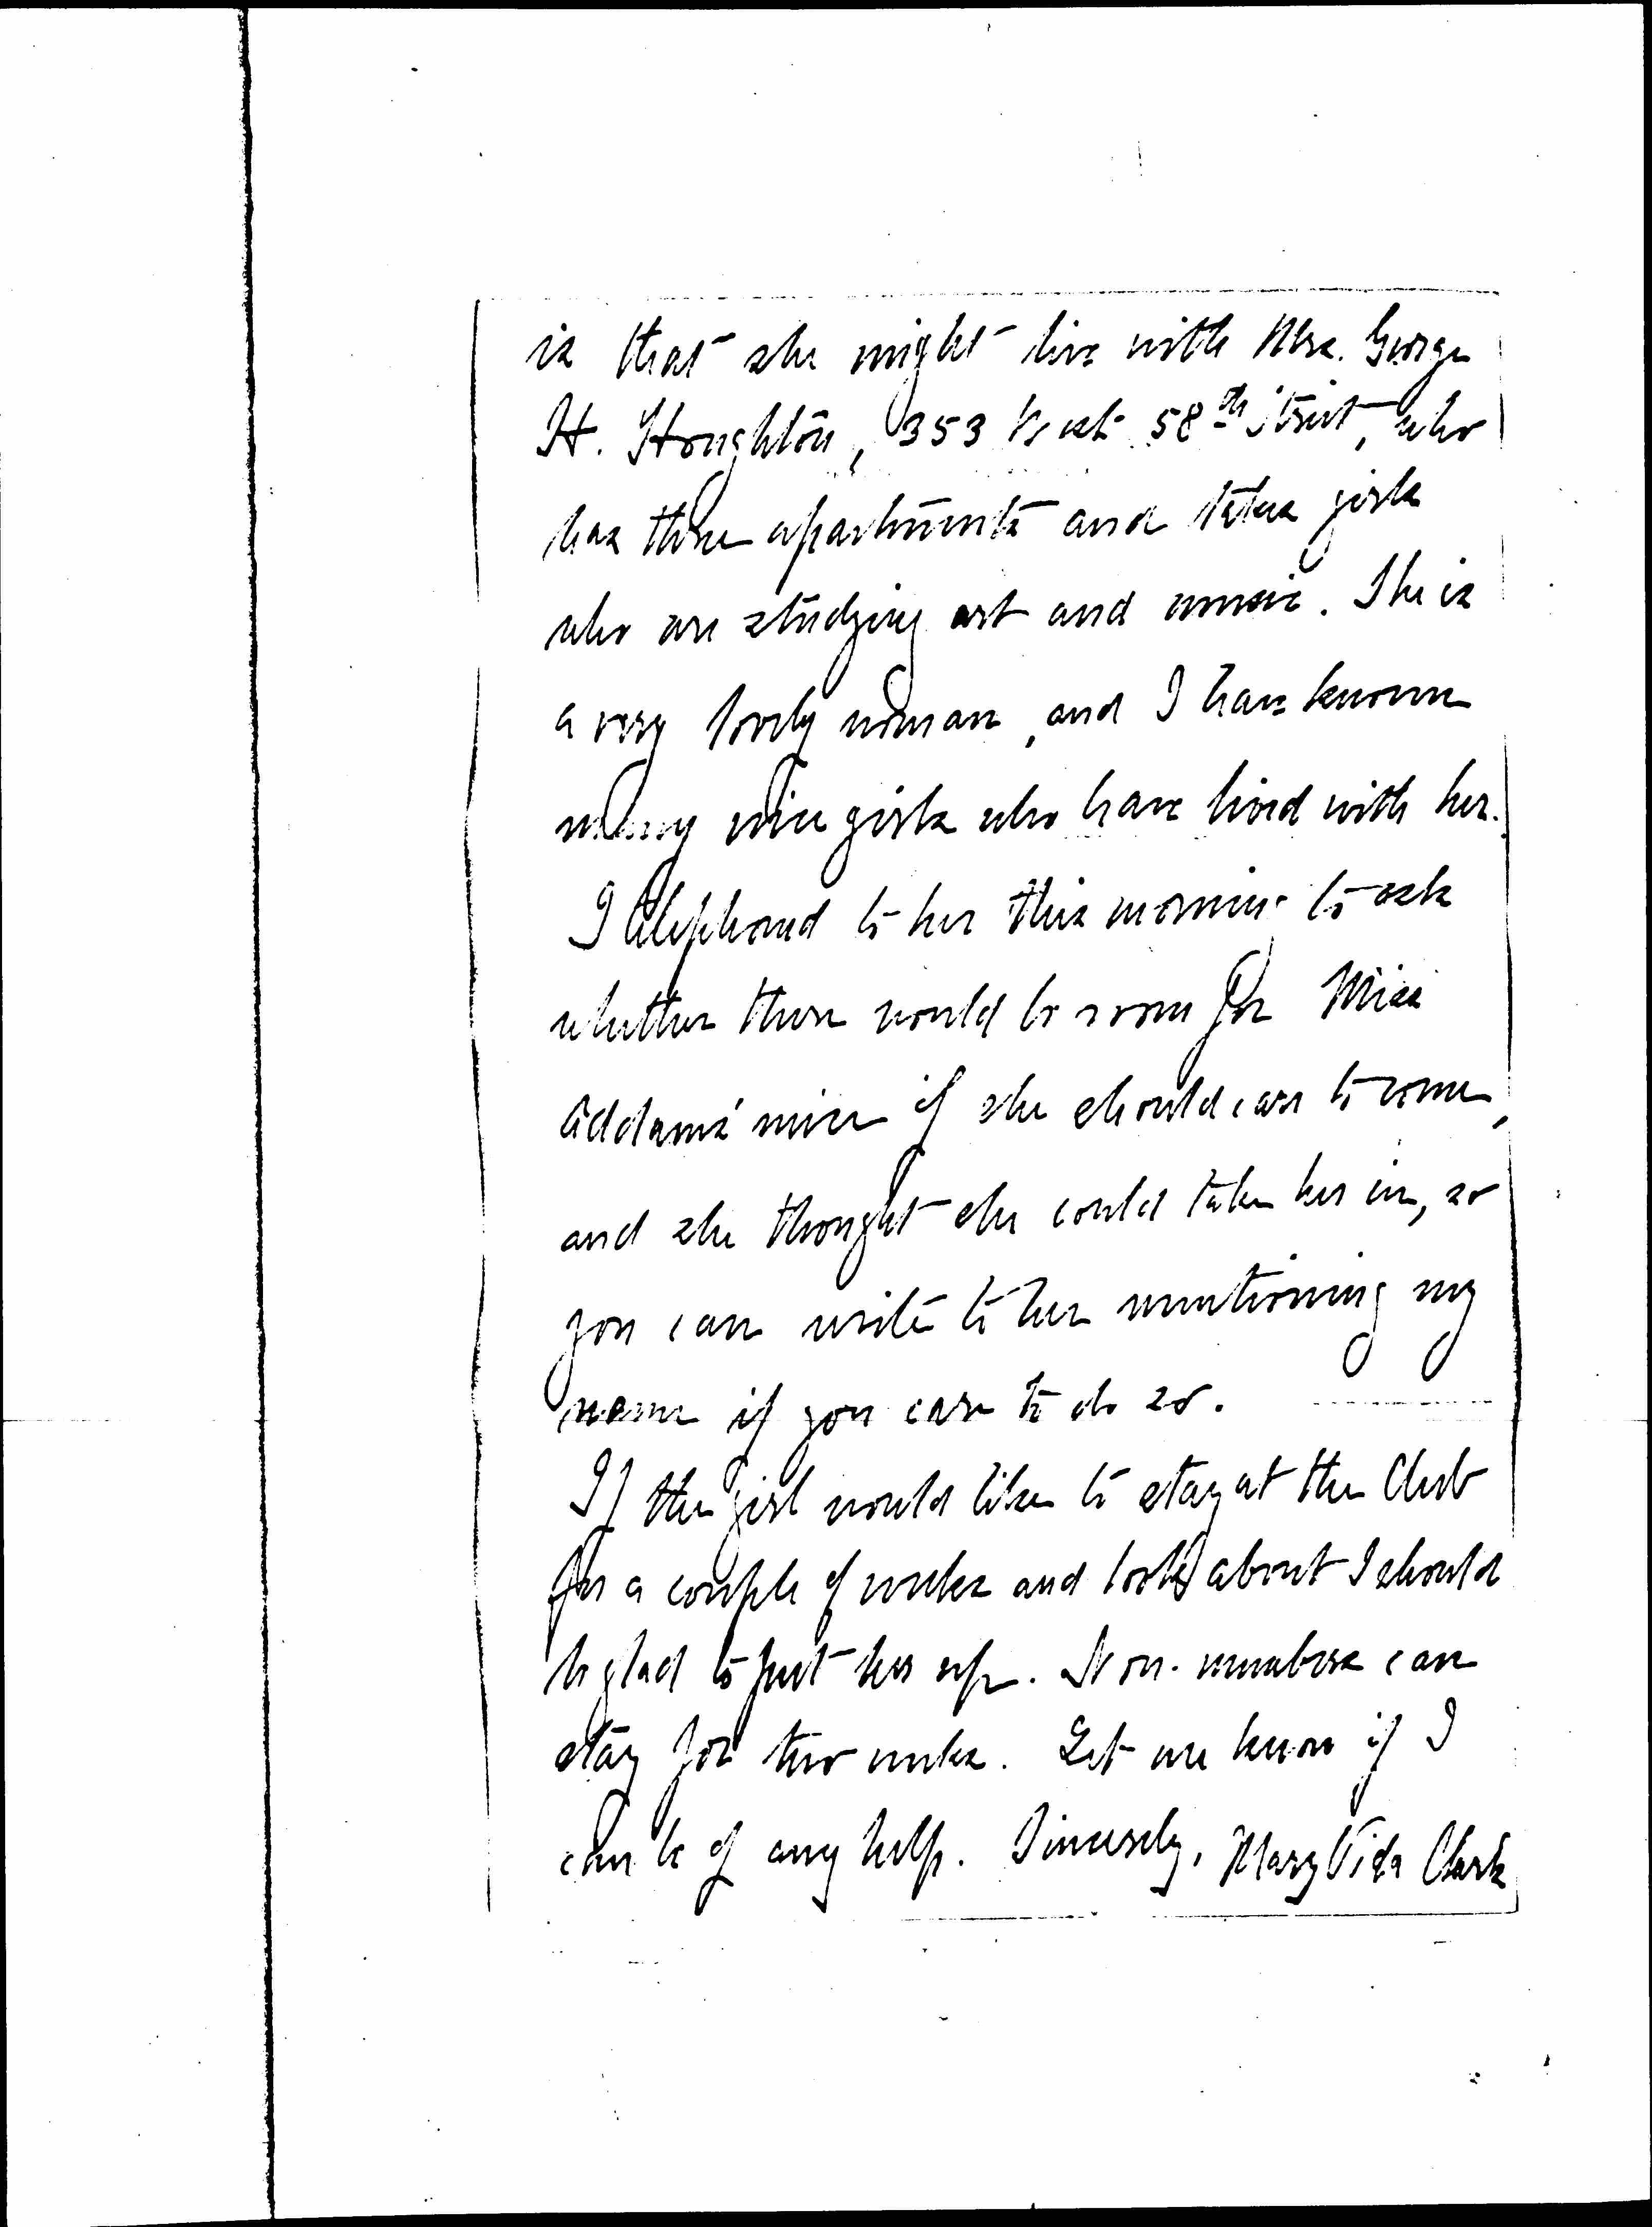 is that she might live with Mrs. George
H. Houghton, 353 West 58th Street, who
has three apartments and takes girls
who are studying art and music. She is
a very lovely woman, and I have known
many nice girls who have lived with her.
I telephoned to her this morning to ask
whether there would be room for Miss
Addams' niece if she should care to come,
and she thought she could take her in, so
you can write to her mentioning my
name if you care to do so.
If the girl would like to stay at the Club
for a couple of weeks and look about I should
be glad to put her up. Non-members can
stay for two weeks. Let me know if I
can be of any help. Sincerely, Mary Vida Clark